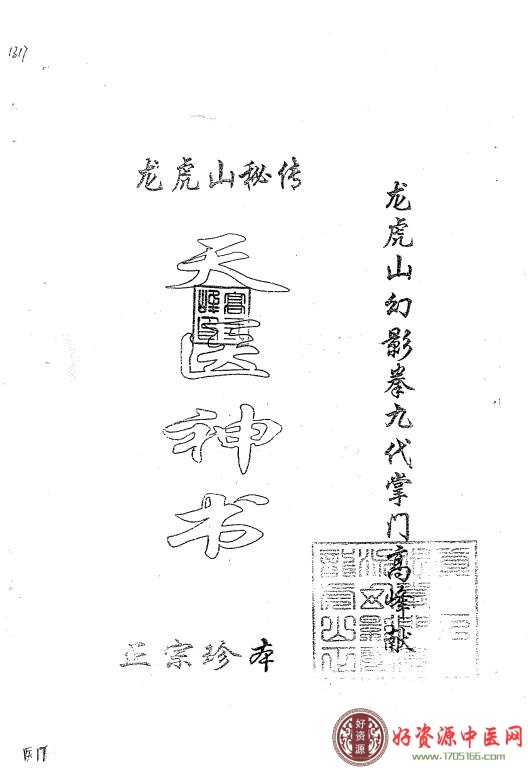 1317
龙虎山秘传
天医神书
龙虎山幻影拳九代掌门高峰献
正宗珍本
好资源
好资源中医网
www.1705166.com